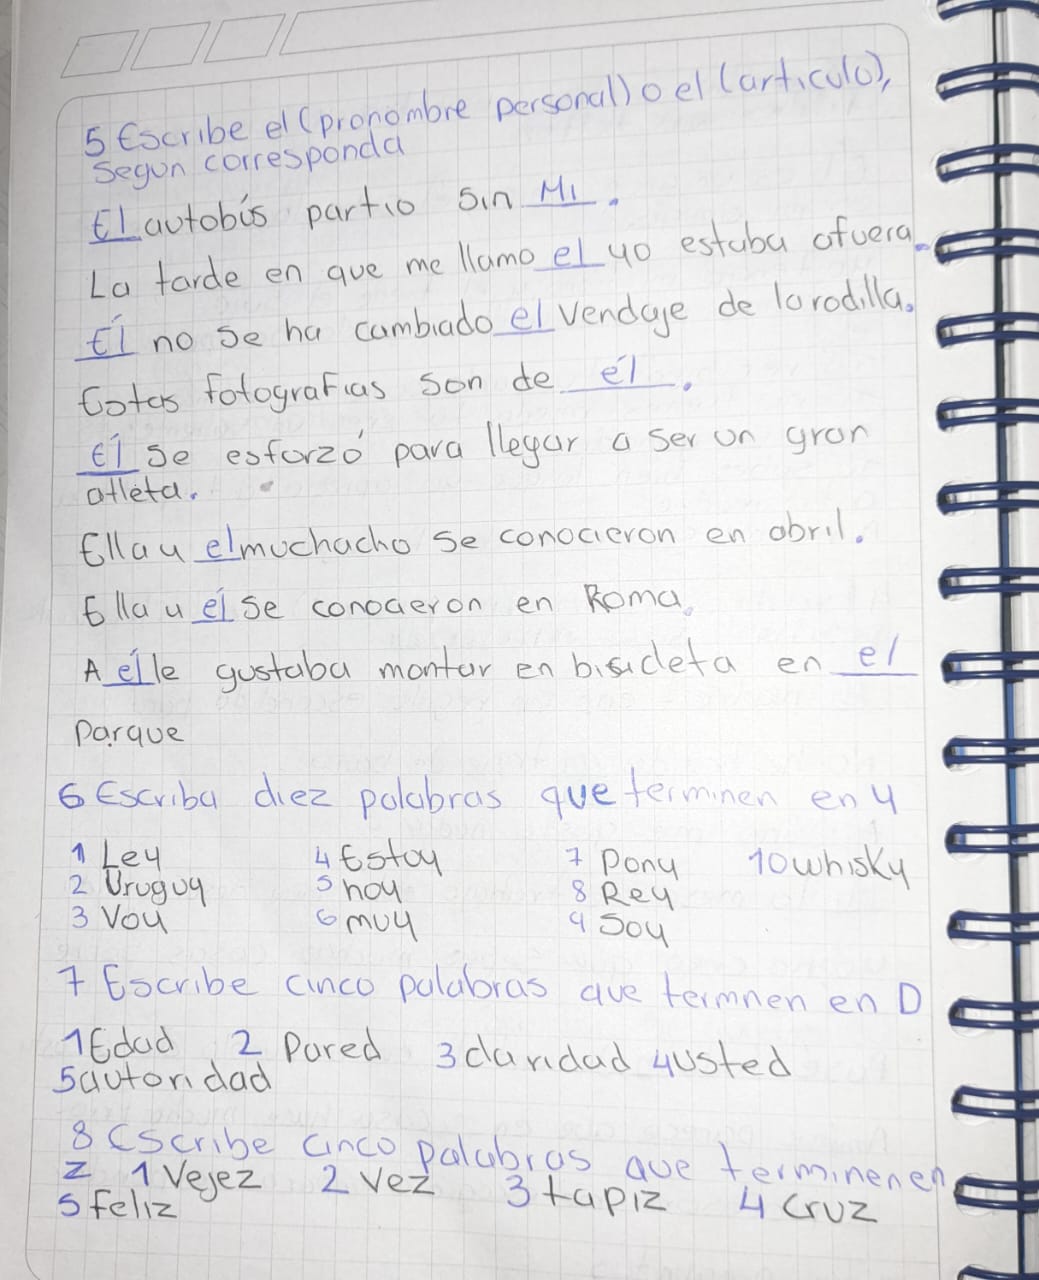 5 Escribe el (pronombre personal) o el (articulo),
Segun corresponda
El autobús partio sin Mi.
La tarde en que me llamo el yo estaba afuera.
Él no se ha cambiado el vendaje de la rodilla.
Estas fotografias son de él.
Él se esforzó para llegar a ser un gran
atleta.
Ella y el muchacho se conocieron en abril.
Ella y él se conocieron en Roma.
A él le gustaba montar en bicicleta en el
parque
6 Escriba diez palabras que terminen en y
1 Ley 4 Estoy 7 Pony 10 whisky
2 Uruguy 5 hoy 8 Rey
3 Voy 6 muy 9 Soy
7 Escribe cinco palabras que termnen en D
1 Edad 2 Pared 3 claridad 4 usted
5 autoridad
8 Escribe cinco palabras que terminen en
z 1 Vejez 2 Vez 3 tapiz 4 Cruz
5 feliz